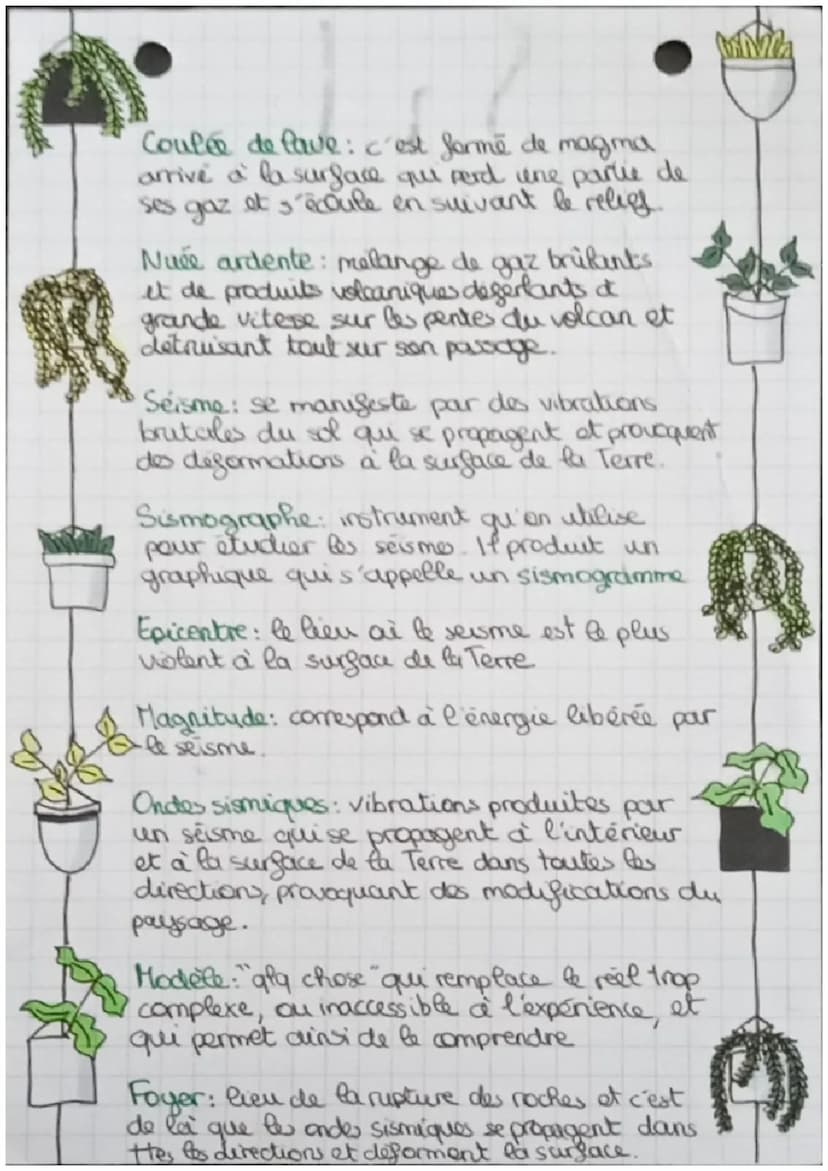 Coulée de lave : c'est formé de magma
arrivé à la surface qui perd une partie de
ses gaz et s'écoule en suivant le relief.
Nuée ardente : mélange de gaz brûlants
et de produits volcaniques déferlants à
grande vitesse sur les pentes du volcan et
détruisant tout sur son passage.
Séisme : se manifeste par des vibrations
brutales du sol qui se propagent et provoquent
des déformations à la surface de la Terre.
Sismographe : instrument qu'on utilise
pour étudier les séisme. Il produit un
graphique qui s'appelle un sismogramme
Epicentre : le lieu où le seisme est le plus
violent à la surface de la Terre
Magnitude : correspond à l'énergie libérée par
le séisme.
Ondes sismiques : vibrations produites par
un séisme qui se propagent à l'intérieur
et à la surface de la Terre dans toutes les
directions, provoquant des modifications du
paysage.
Modèle : "qlq chose" qui remplace le réel trop
complexe, ou inaccessible à l'expérience, et
qui permet ainsi de le comprendre
Foyer : lieu de la rupture des roches et c'est
de là que les ondes sismiques se propagent dans
ttes les directions et déforment la surface.